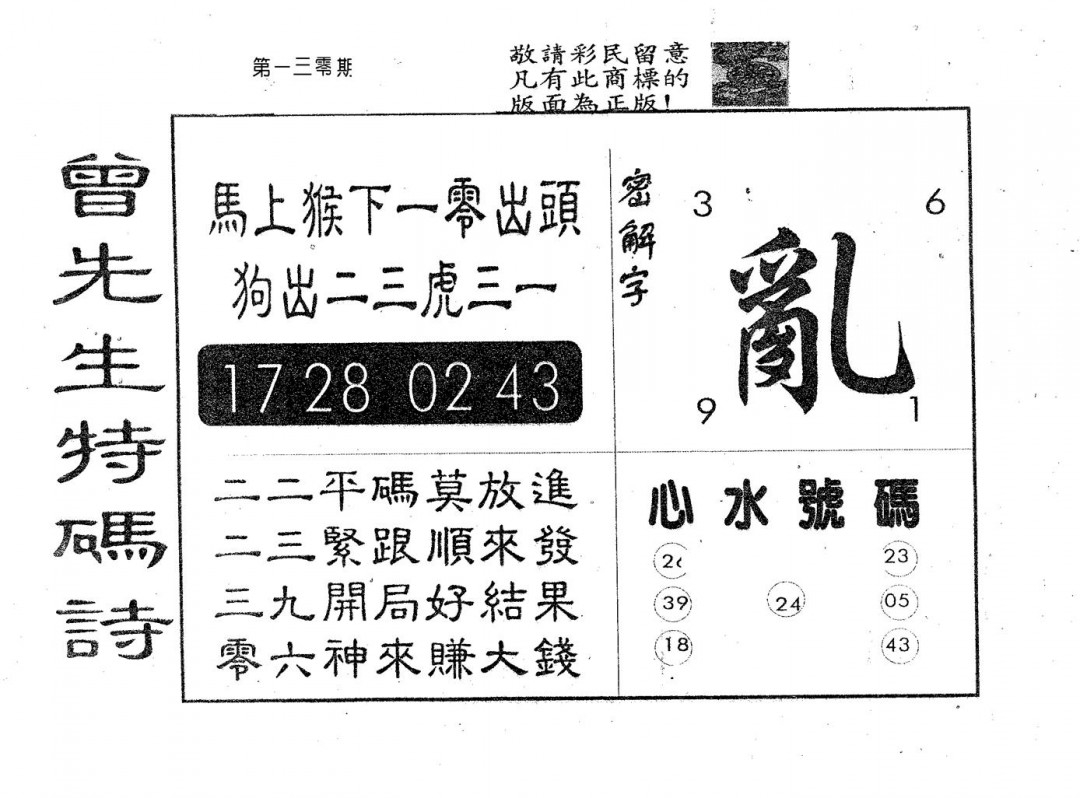 第一三零期
敬請彩民留意
凡有此商標的
版面為正版!
曾先生特碼詩
馬上猴下一零出頭
狗出二三虎三一
17 28 02 43
二二平碼莫放進
二三緊跟順來發
三九開局好結果
零六神來賺大錢
密解字
3 6
亂
9 1
心水號碼
26 23
39 24 05
18 43